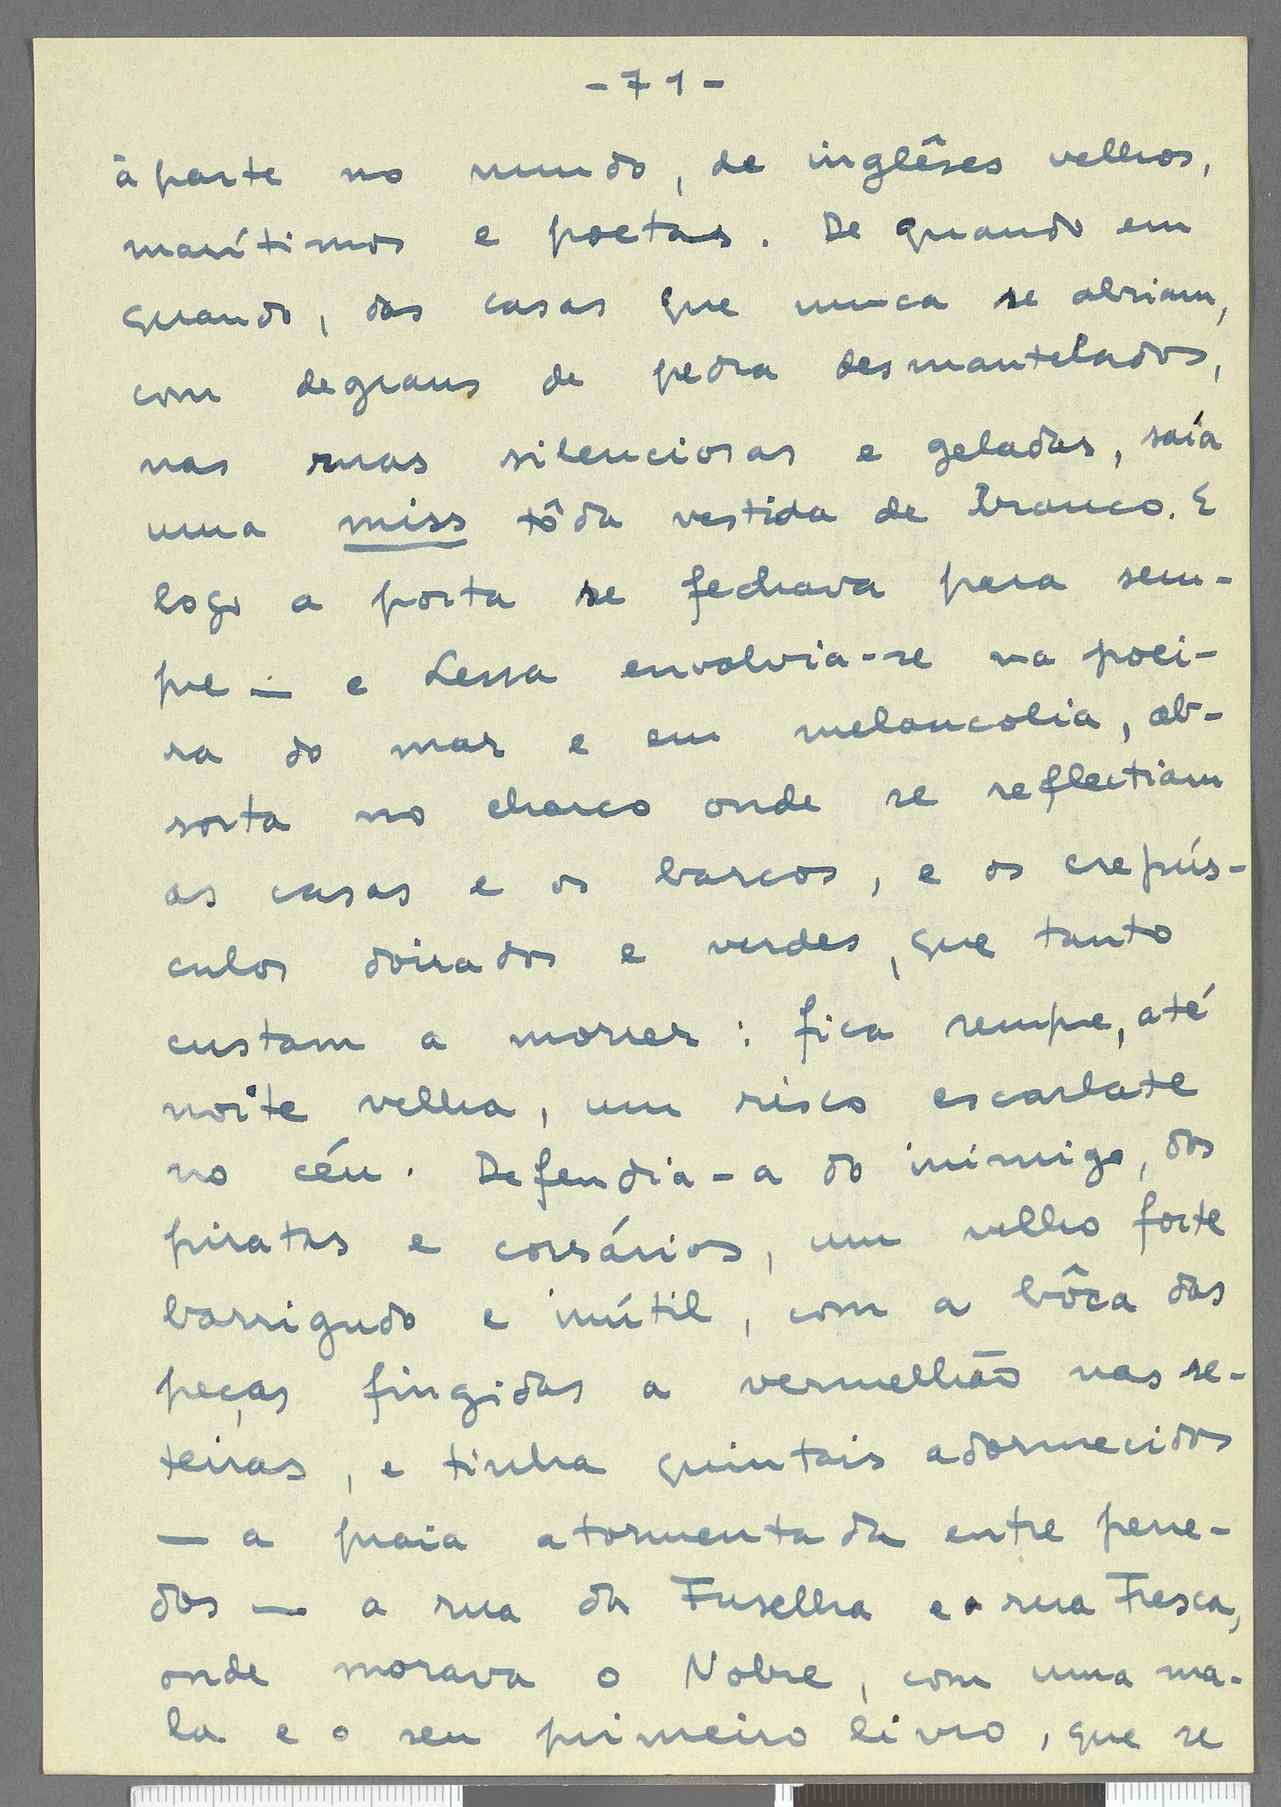 - 71 -
à parte no mundo, de inglêses velhos,
marítimos e poetas. De quando em
quando, das casas que nunca se abriam,
com degraus de pedra desmantelados,
nas ruas silenciosas e geladas, saía
uma miss tôda vestida de branco. E
logo a porta se fechava pera sem-
pre — e Lessa envolvia-se na poei-
ra do mar e em melancolia, ab-
sorta no charco onde se reflectiam
as casas e os barcos, e os crepús-
culos doirados e verdes, que tanto
custam a morrer: fica sempre, até
noite velha, um risco escarlate
no céu. Defendia-a do inimigo, dos
piratas e corsários, um velho forte
barrigudo e inútil, com a bôca das
peças fingidas a vermelhão nas se-
teiras, e tinha quintais adormecidos
— a praia atormentada entre pene-
dos — a rua da Fuselha e a rua Fresca,
onde morava o Nobre, com uma ma-
la e o seu primeiro livro, que se